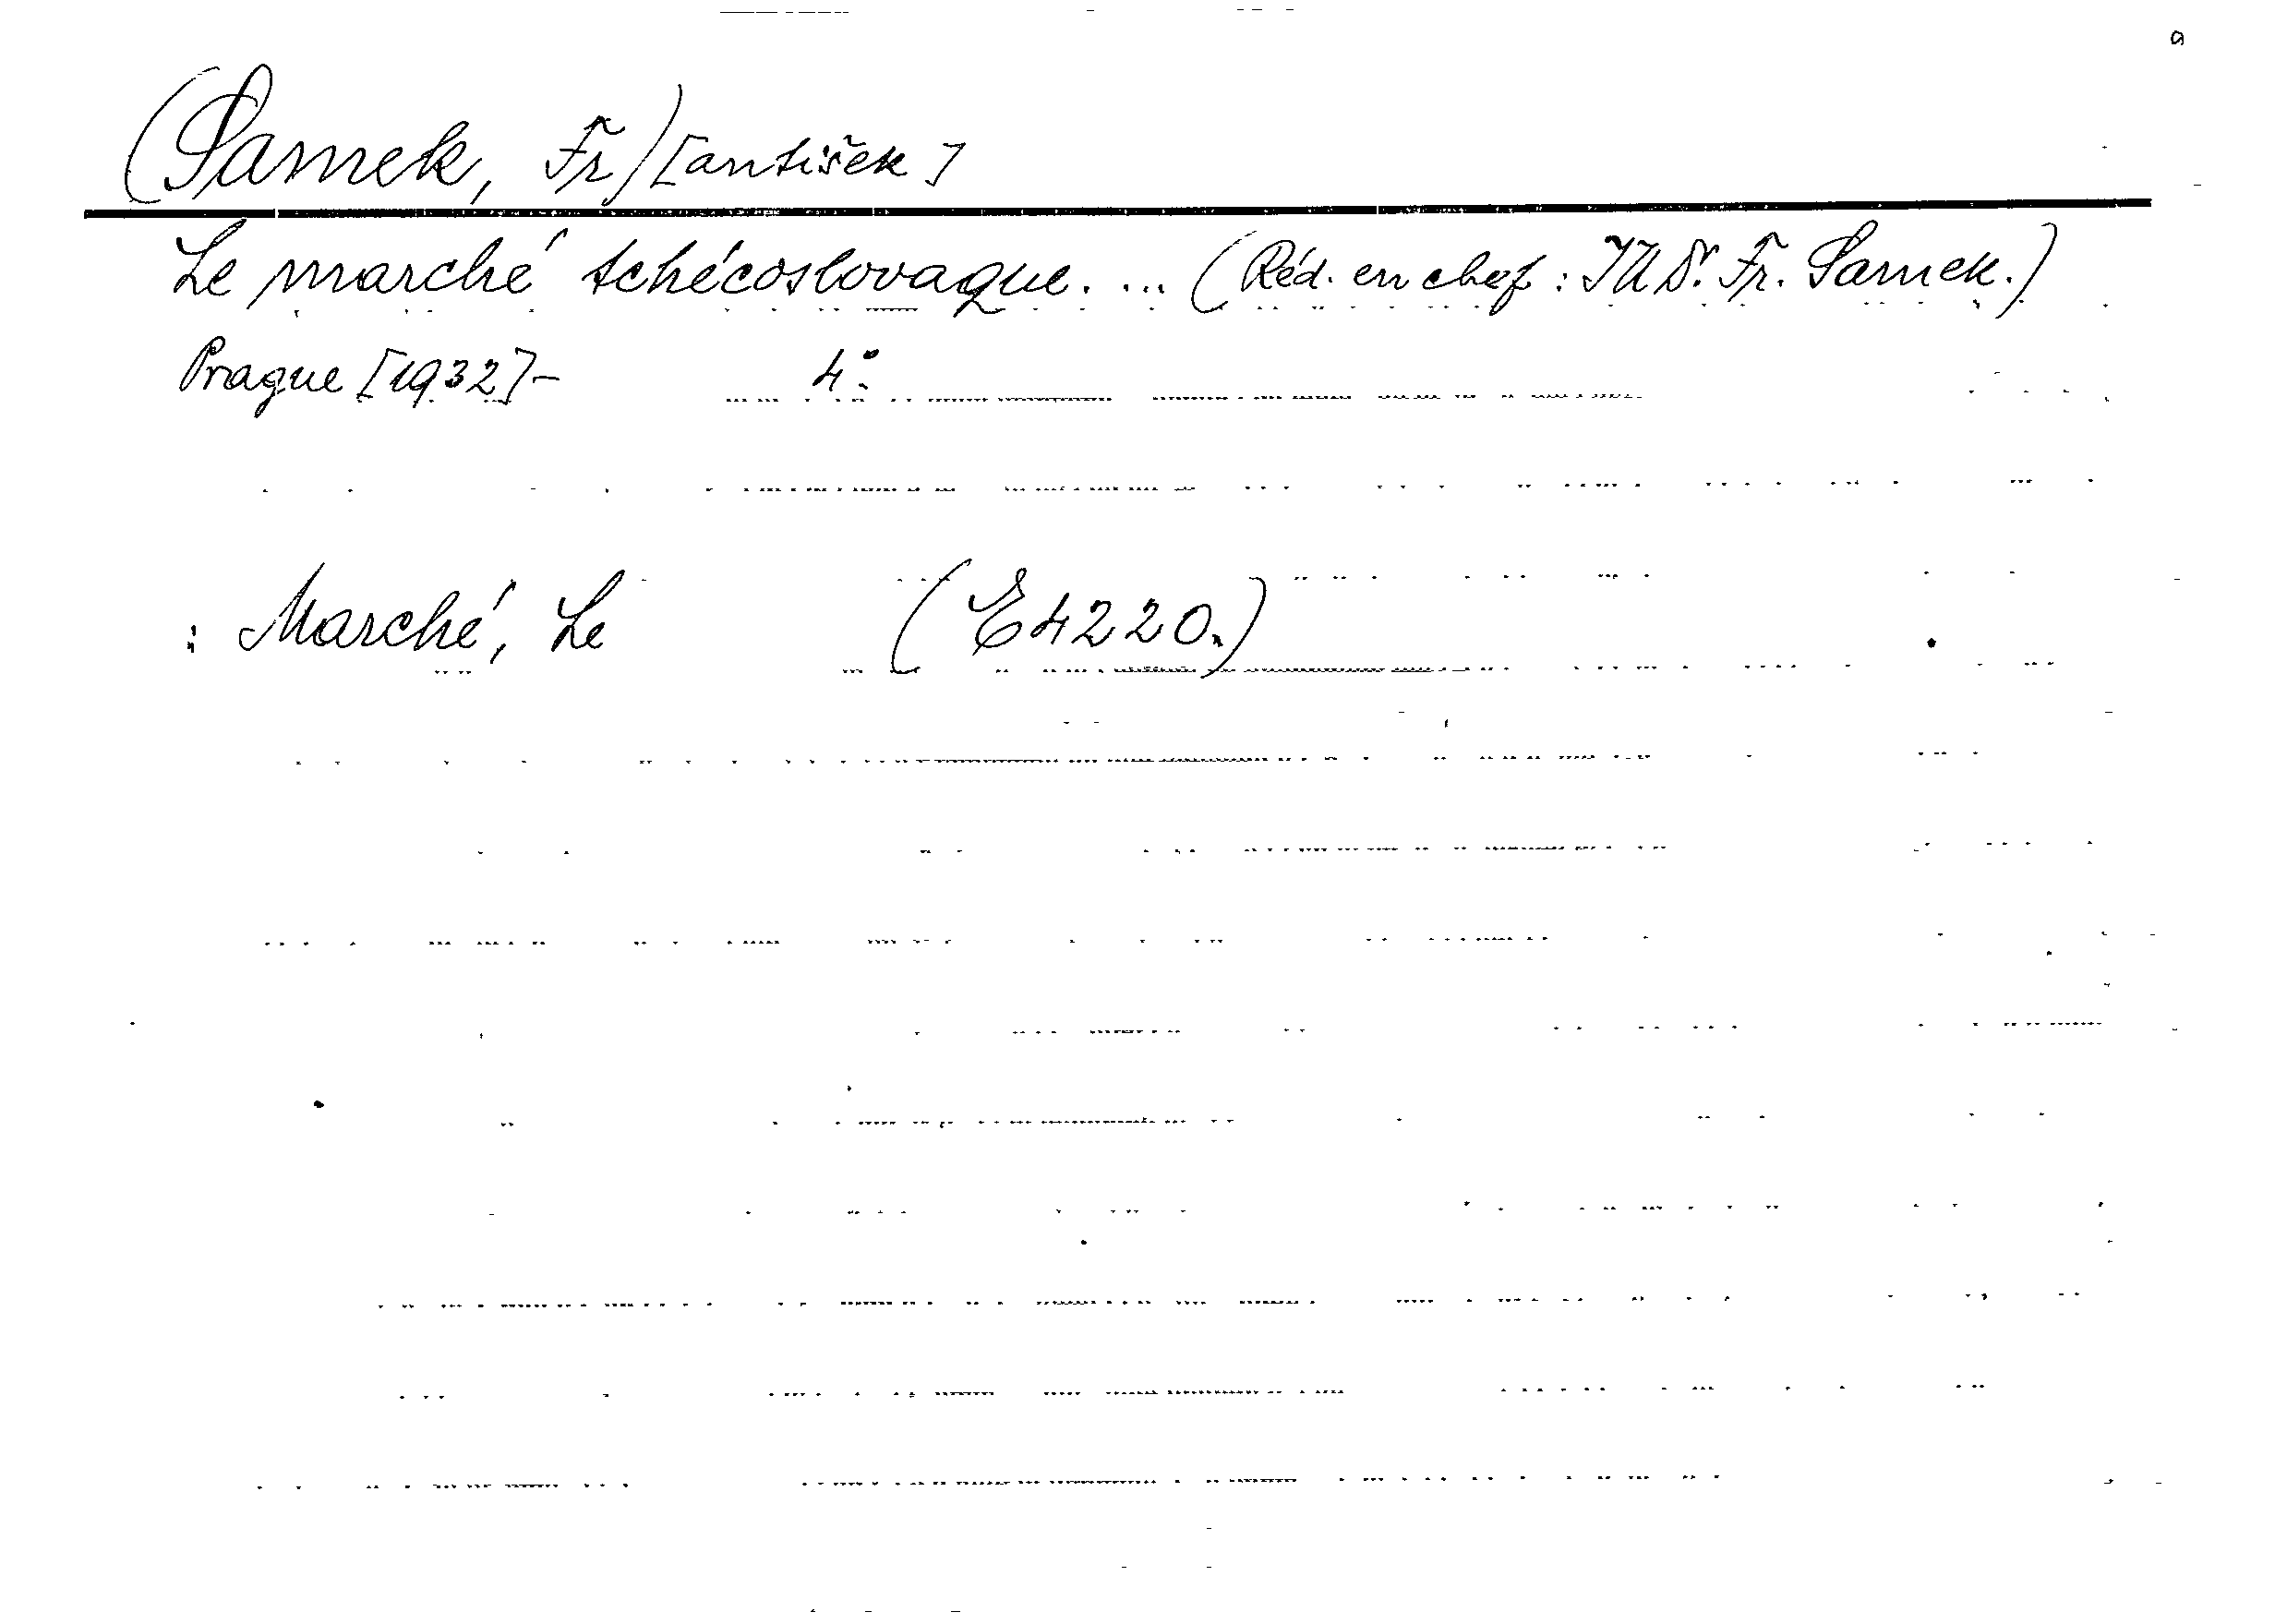 (Samek, Fr)[antišek]
Le marché tchécoslovaque. ... (Réd. en chef: JUDr. Fr. Samek.)
Prague [1932]- 4°.
: Marché, Le (E4220.)